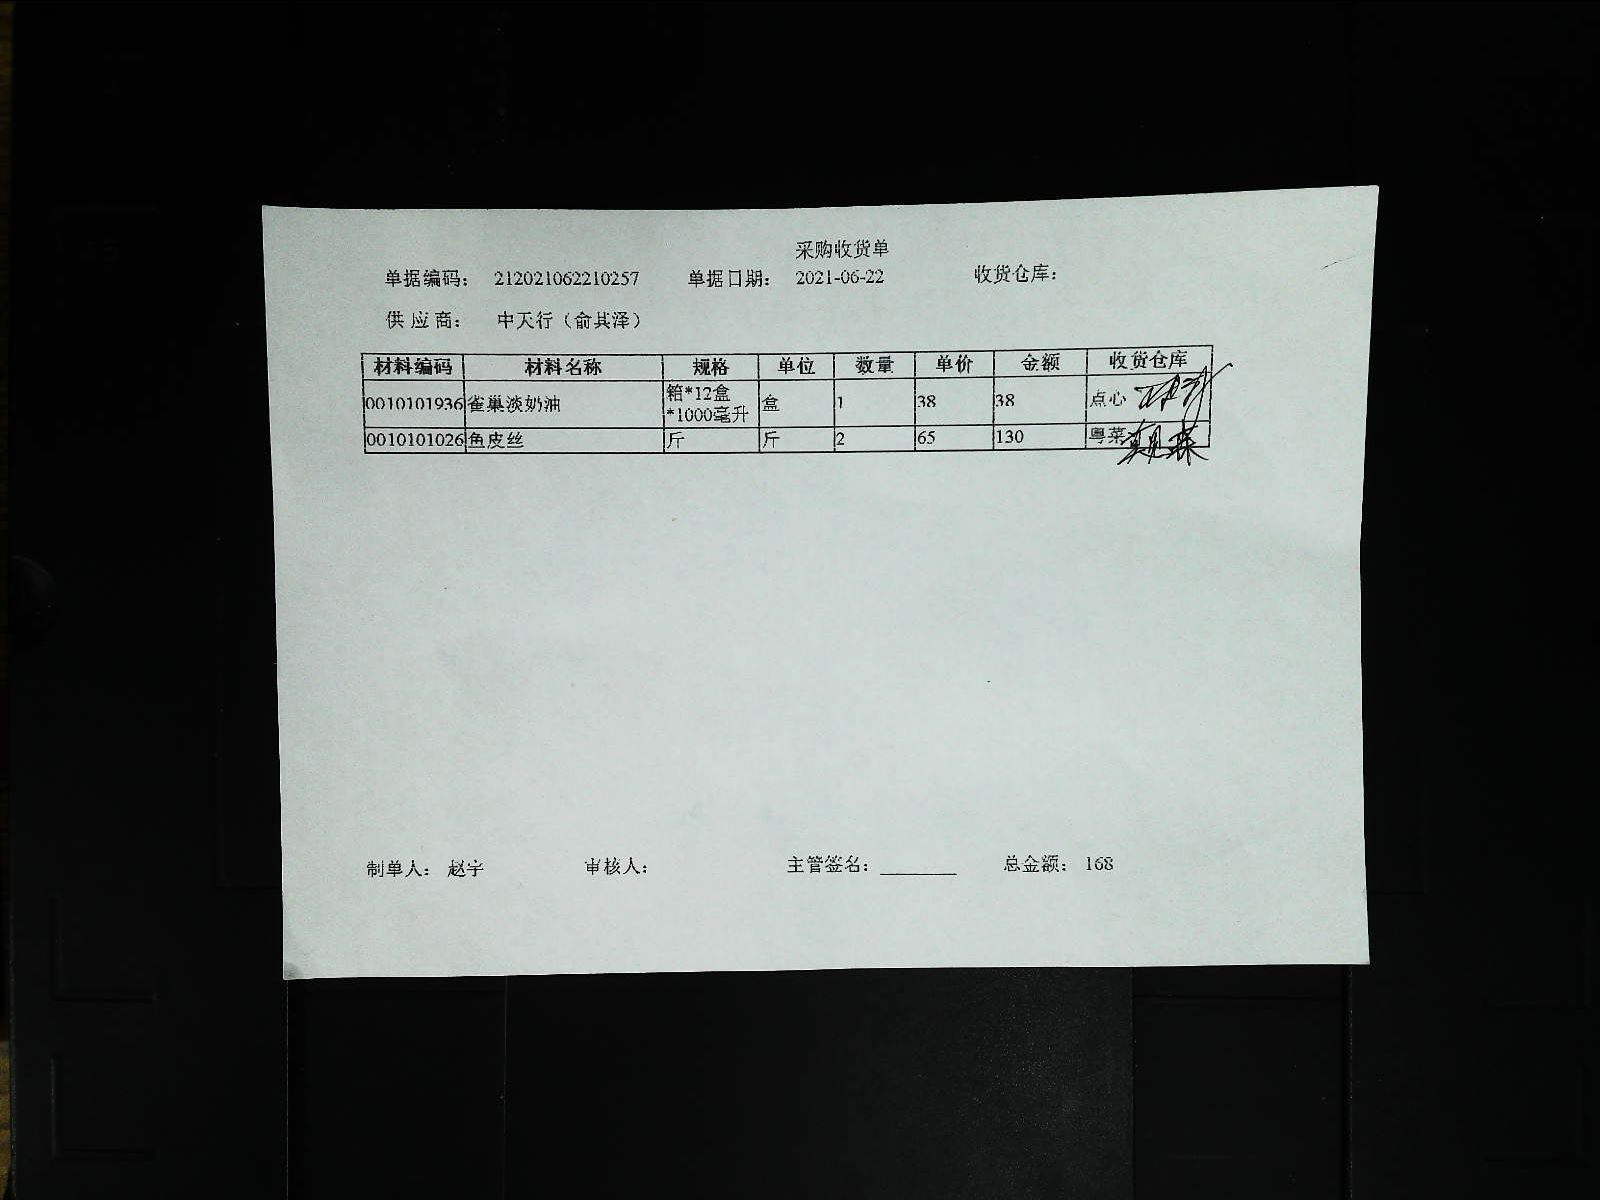 采购收货单
单据编码： 212021062210257 单据日期： 2021-06-22 收货仓库：
供 应 商： 中天行（俞其泽）
材料编码 材料名称 规格 单位 数量 单价 金额 收货仓库
0010101936 雀巢淡奶油 箱*12盒*1000毫升 盒 1 38 38 点心
0010101026 鱼皮丝 斤 斤 2 65 130 粤菜
制单人： 赵宇 审核人： 主管签名： 总金额： 168